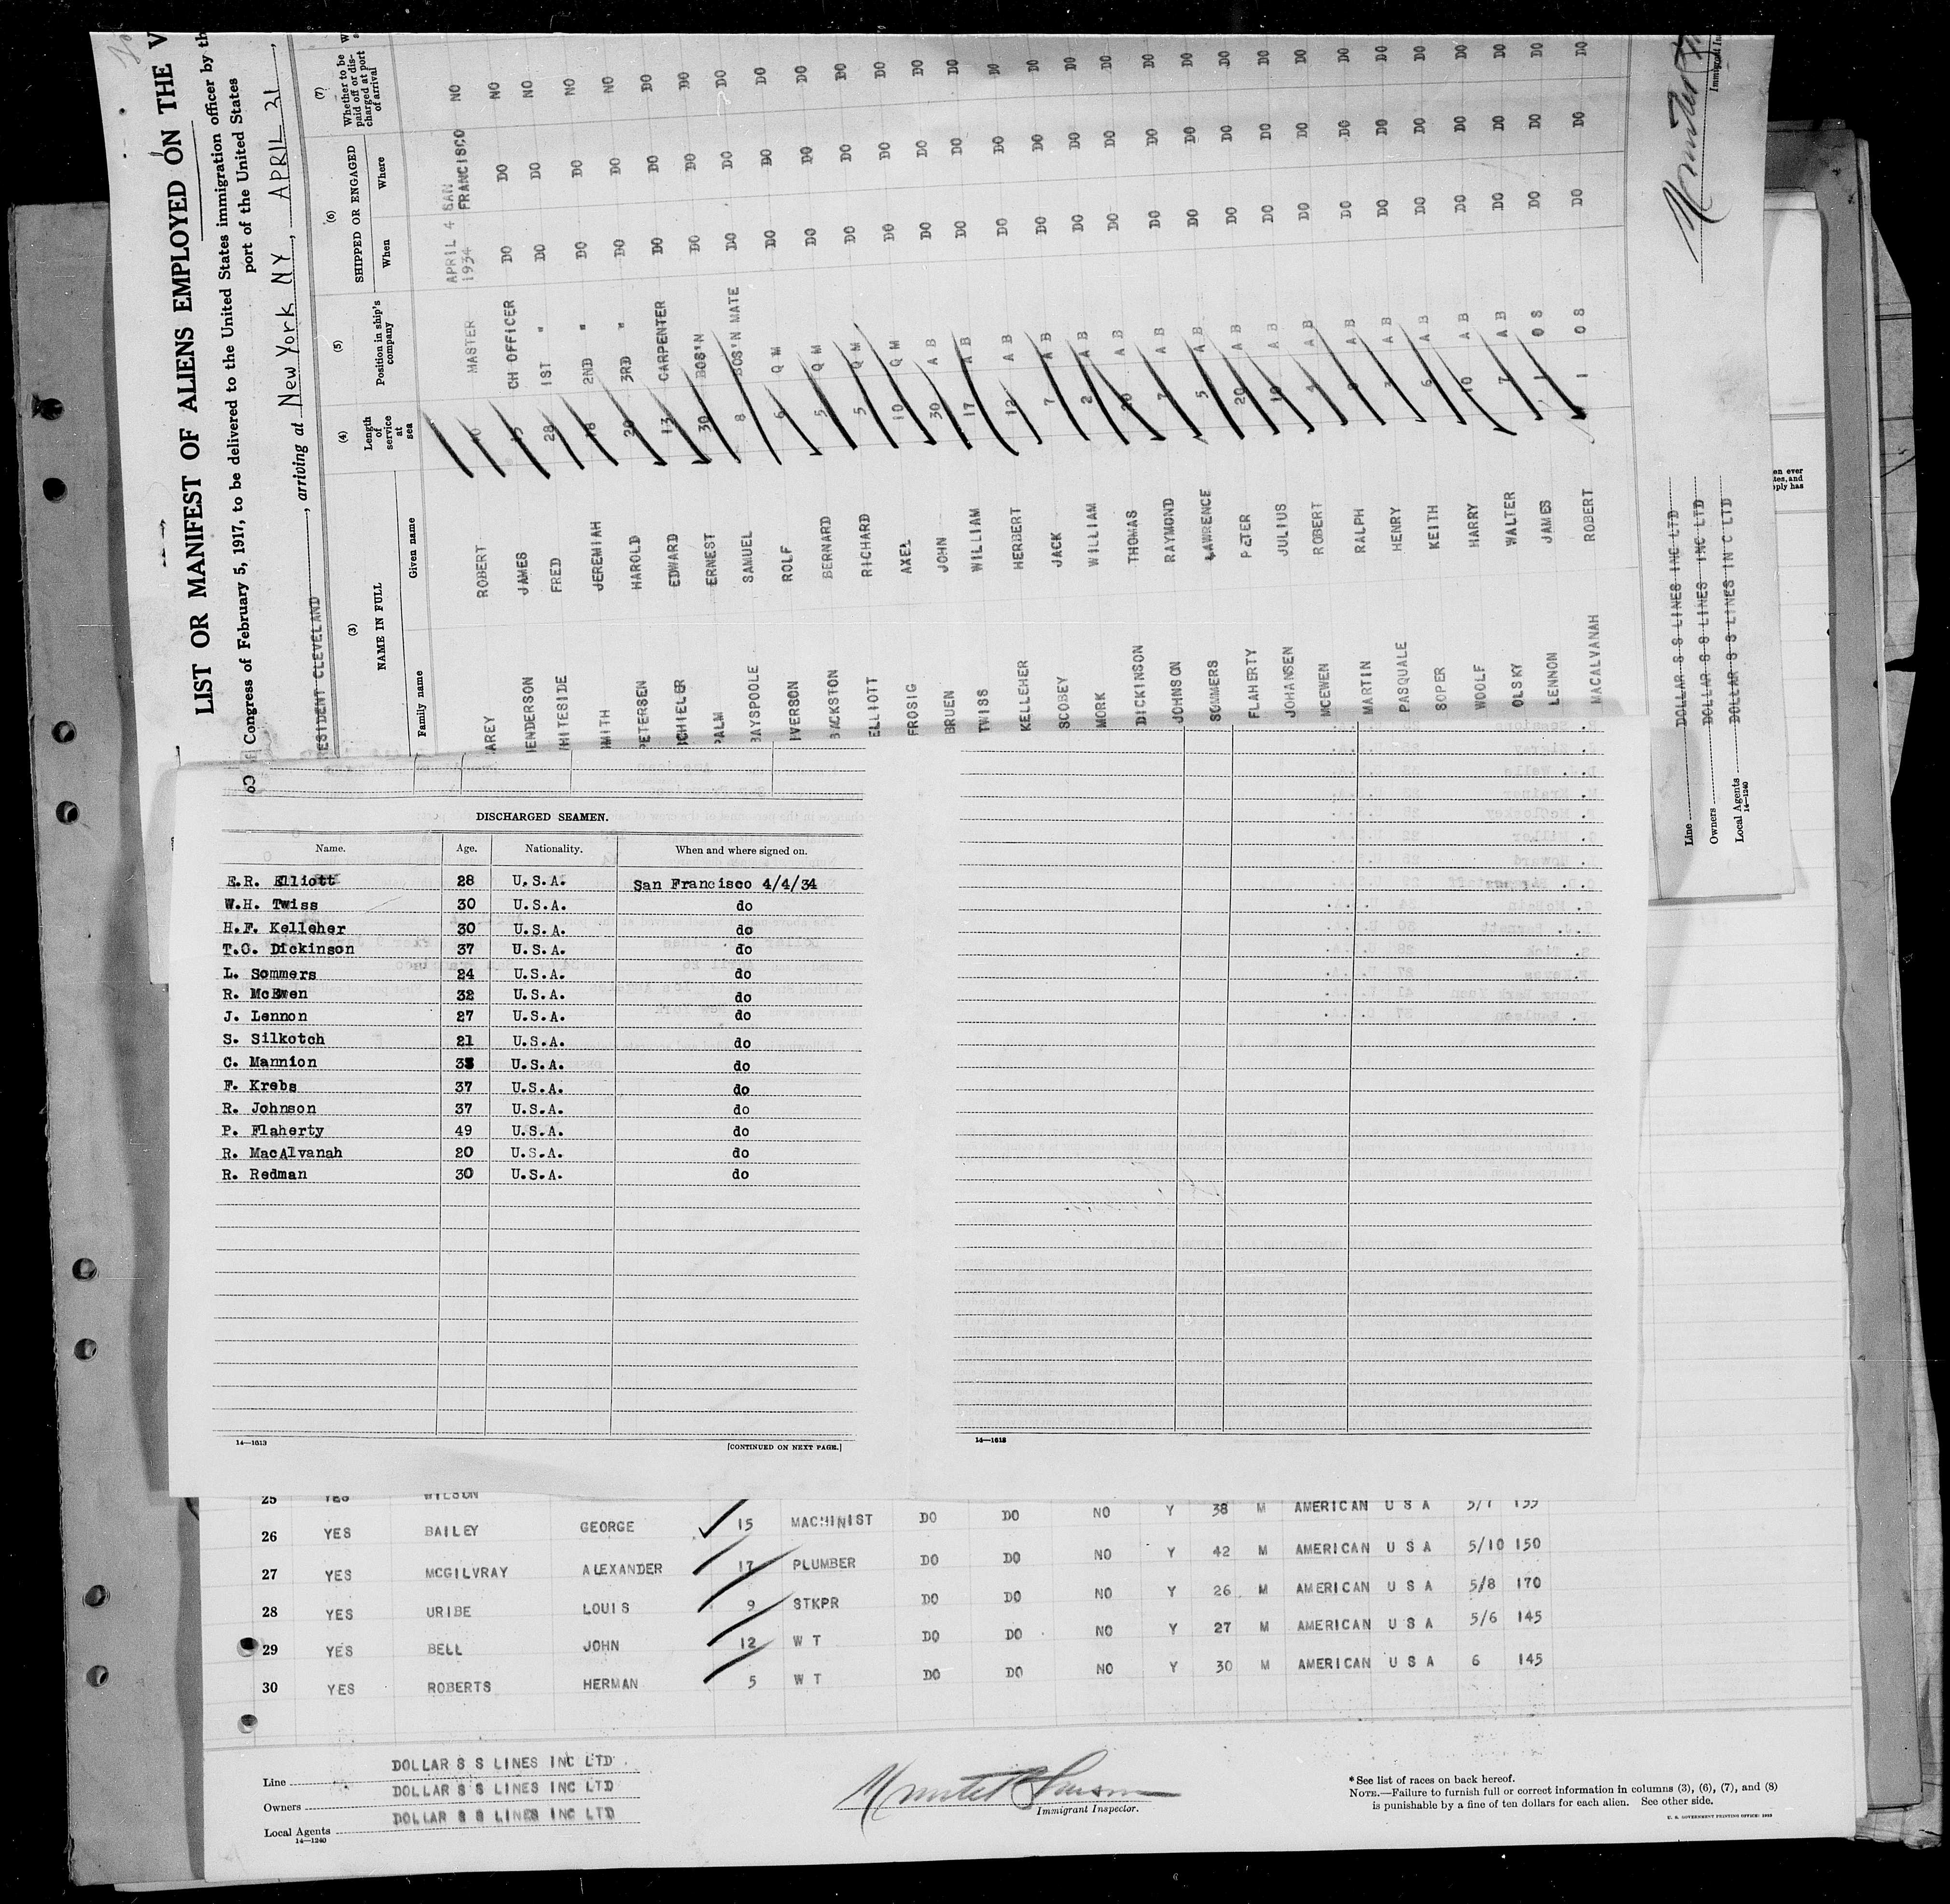 LIST OR MANIFEST OF ALIENS EMPLOYED ON THE V
Congress of February 5, 1917, to be delivered to the United States immigration officer by th
port of the United States
RESIDENT CLEVELAND, arriving at New York NY, APRIL 21,
(3) (4) (5) (6) (7)
NAME IN FULL Length of service at sea Position in ship's company SHIPPED OR ENGAGED Whether to be paid off or discharged at port of arrival
Family name Given name When Where
AREY ROBERT MASTER APRIL 4 1934 SAN FRANCISCO NO
HENDERSON JAMES 15 CH OFFICER DO DO NO
WHITESIDE FRED 28 1ST " DO DO NO
SMITH JEREMIAH 18 2ND " DO DO NO
PETERSEN HAROLD 20 3RD " DO DO NO
SCHIELER EDWARD 13 CARPENTER DO DO DO
PALM ERNEST 30 BOS'N DO DO DO
BAYSPOOLE SAMUEL 8 BOS'N MATE DO DO DO
IVERSON ROLF 6 Q M DO DO DO
BACKSTON BERNARD 5 Q M DO DO DO
ELLIOTT RICHARD 5 Q M DO DO DO
FROSIG AXEL 10 Q M DO DO DO
BRUEN JOHN 30 A B DO DO DO
TWISS WILLIAM 17 A B DO DO DO
KELLEHER HERBERT 12 A B DO DO DO
SCOBEY JACK 7 A B DO DO DO
MORK WILLIAM 2 A B DO DO DO
DICKINSON THOMAS 20 A B DO DO DO
JOHNSON RAYMOND 7 A B DO DO DO
SOMMERS LAWRENCE 5 A B DO DO DO
FLAHERTY PETER 20 A B DO DO DO
JOHANSEN JULIUS 10 A B DO DO DO
MCEWEN ROBERT 4 A B DO DO DO
MARTIN RALPH A B DO DO DO
PASQUALE HENRY 3 A B DO DO DO
SOPER KEITH 6 A B DO DO DO
WOOLF HARRY 10 A B DO DO DO
OLSKY WALTER 7 A B DO DO DO
LENNON JAMES 1 O S DO DO DO
MACALVANAH ROBERT 1 O S DO DO DO
Line DOLLAR S S LINES INC LTD
Owners DOLLAR S S LINES INC LTD
Local Agents DOLLAR S S LINES INC LTD
14—1240
Immigrant In
DISCHARGED SEAMEN.
Name. Age. Nationality. When and where signed on.
E.R. Elliott 28 U.S.A. San Francisco 4/4/34
W.H. Twiss 30 U.S.A. do
H.F. Kelleher 30 U.S.A. do
T.G. Dickinson 37 U.S.A. do
L. Sommers 24 U.S.A. do
R. McEwen 32 U.S.A. do
J. Lennon 27 U.S.A. do
S. Silkotch 21 U.S.A. do
C. Mannion U.S.A. do
F. Krebs 37 U.S.A. do
R. Johnson 37 U.S.A. do
P. Flaherty 49 U.S.A. do
R. MacAlvanah 20 U.S.A. do
R. Redman 30 U.S.A. do
14—1613 [CONTINUED ON NEXT PAGE.]
14—1613
25 YES WILSON 38 M AMERICAN U S A 5/7 155
26 YES BAILEY GEORGE 15 MACHINIST DO DO NO Y
27 YES MCGILVRAY ALEXANDER 17 PLUMBER DO DO NO Y 42 M AMERICAN U S A 5/10 150
28 YES URIBE LOUIS 9 STKPR DO DO NO Y 26 M AMERICAN U S A 5/8 170
29 YES BELL JOHN 12 W T DO DO NO Y 27 M AMERICAN U S A 5/6 145
30 YES ROBERTS HERMAN 5 W T DO DO NO Y 30 M AMERICAN U S A 6 145
Line DOLLAR S S LINES INC LTD
Owners DOLLAR S S LINES INC LTD
Local Agents DOLLAR S S LINES INC LTD
14—1240
Immigrant Inspector.
*See list of races on back hereof.
NOTE.—Failure to furnish full or correct information in columns (3), (6), (7), and (8)
is punishable by a fine of ten dollars for each alien. See other side.
U. S. GOVERNMENT PRINTING OFFICE: 1933